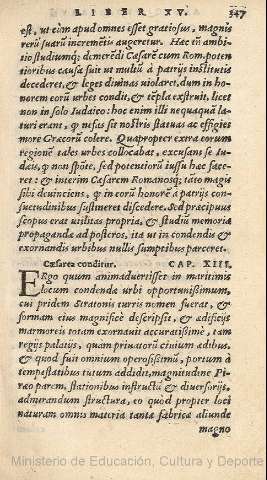 LIBER XV. 347
est, ut cùm apud omnes esset gratiosus, magnis
rerũ suarũ incremẽtis augeretur. Hæc tñ ambi-
tio studiumq; demerēdi Cæsarē cum Rom. poten
tioribus causa fuit ut multũ à patrijs institutis
decederet, & leges diuinas uiolaret, dum in ho-
norem eorũ urbes condit, & tēpla exstruit, licet
non in solo Iudaico: hoc enim illi nequaquã la-
turi erant, q̃ nefas sit nostris statuas ac effigies
more Græcorũ colere. Quapropter extra eorum
regionē tales urbes collocabat, excusans se Iu-
dæis, q̃ non spõte, sed potentiorũ iussu hæc face-
ret: & interim Cæsarem Romanosq; tãto magis
sibi deuinciens, q̃ in eorũ honorē à patrijs con-
suetudinibus sustineret discedere. Sed præcipuus
scopus erat utilitas propria, & studiũ memoriæ
propagandæ ad posteros, ita ut in condendis &
exornandis urbibus nullis sumptibus parceret.
Cæsarea conditur. CAP. XIII.
ERgo quum animaduertisset in maritimis
locum condendæ urbi opportunissimum,
cui pridem Stratonis turris nomen fuerat, &
formam eius magnificè descripsit, & ædificijs
marmoreis totam exornauit accuratissimè, tam
regijs palatijs, quam priuatorũ ciuium ædibus,
& quod fuit omnium operosissimũ, portum à
tempestatibus tutum addidit, magnitudine Pi-
ræo parem, stationibus instructũ & diuersorijs,
admirandum structura, eo quòd propter loci
naturam omnis materia tantæ fabricæ aliunde
magno
Ministerio de Educación, Cultura y Deporte